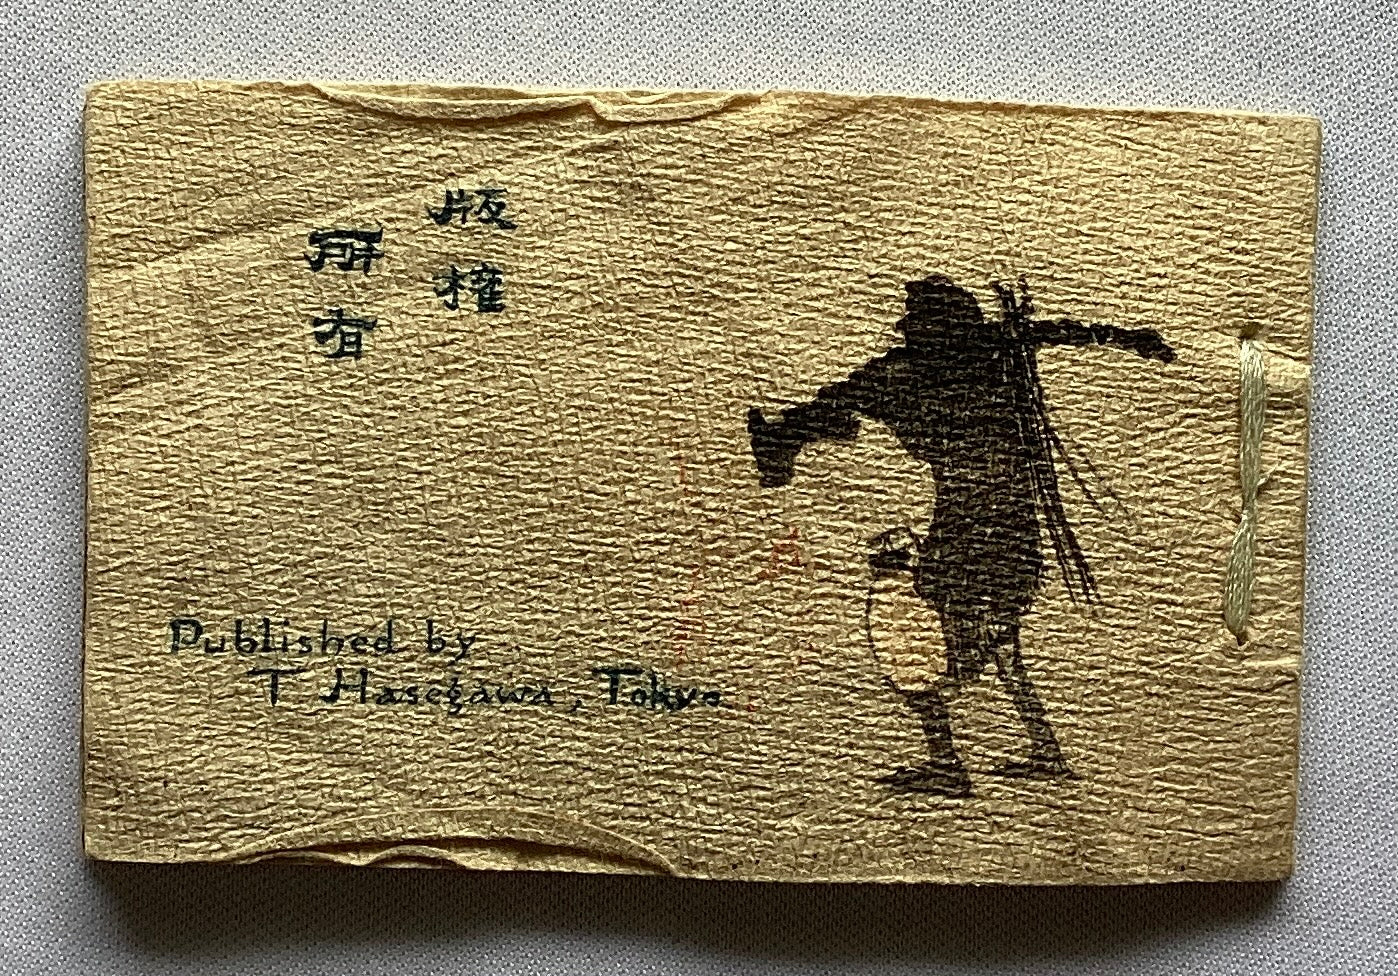 版權
所有
Published by
T Hasegawa, Tokyo